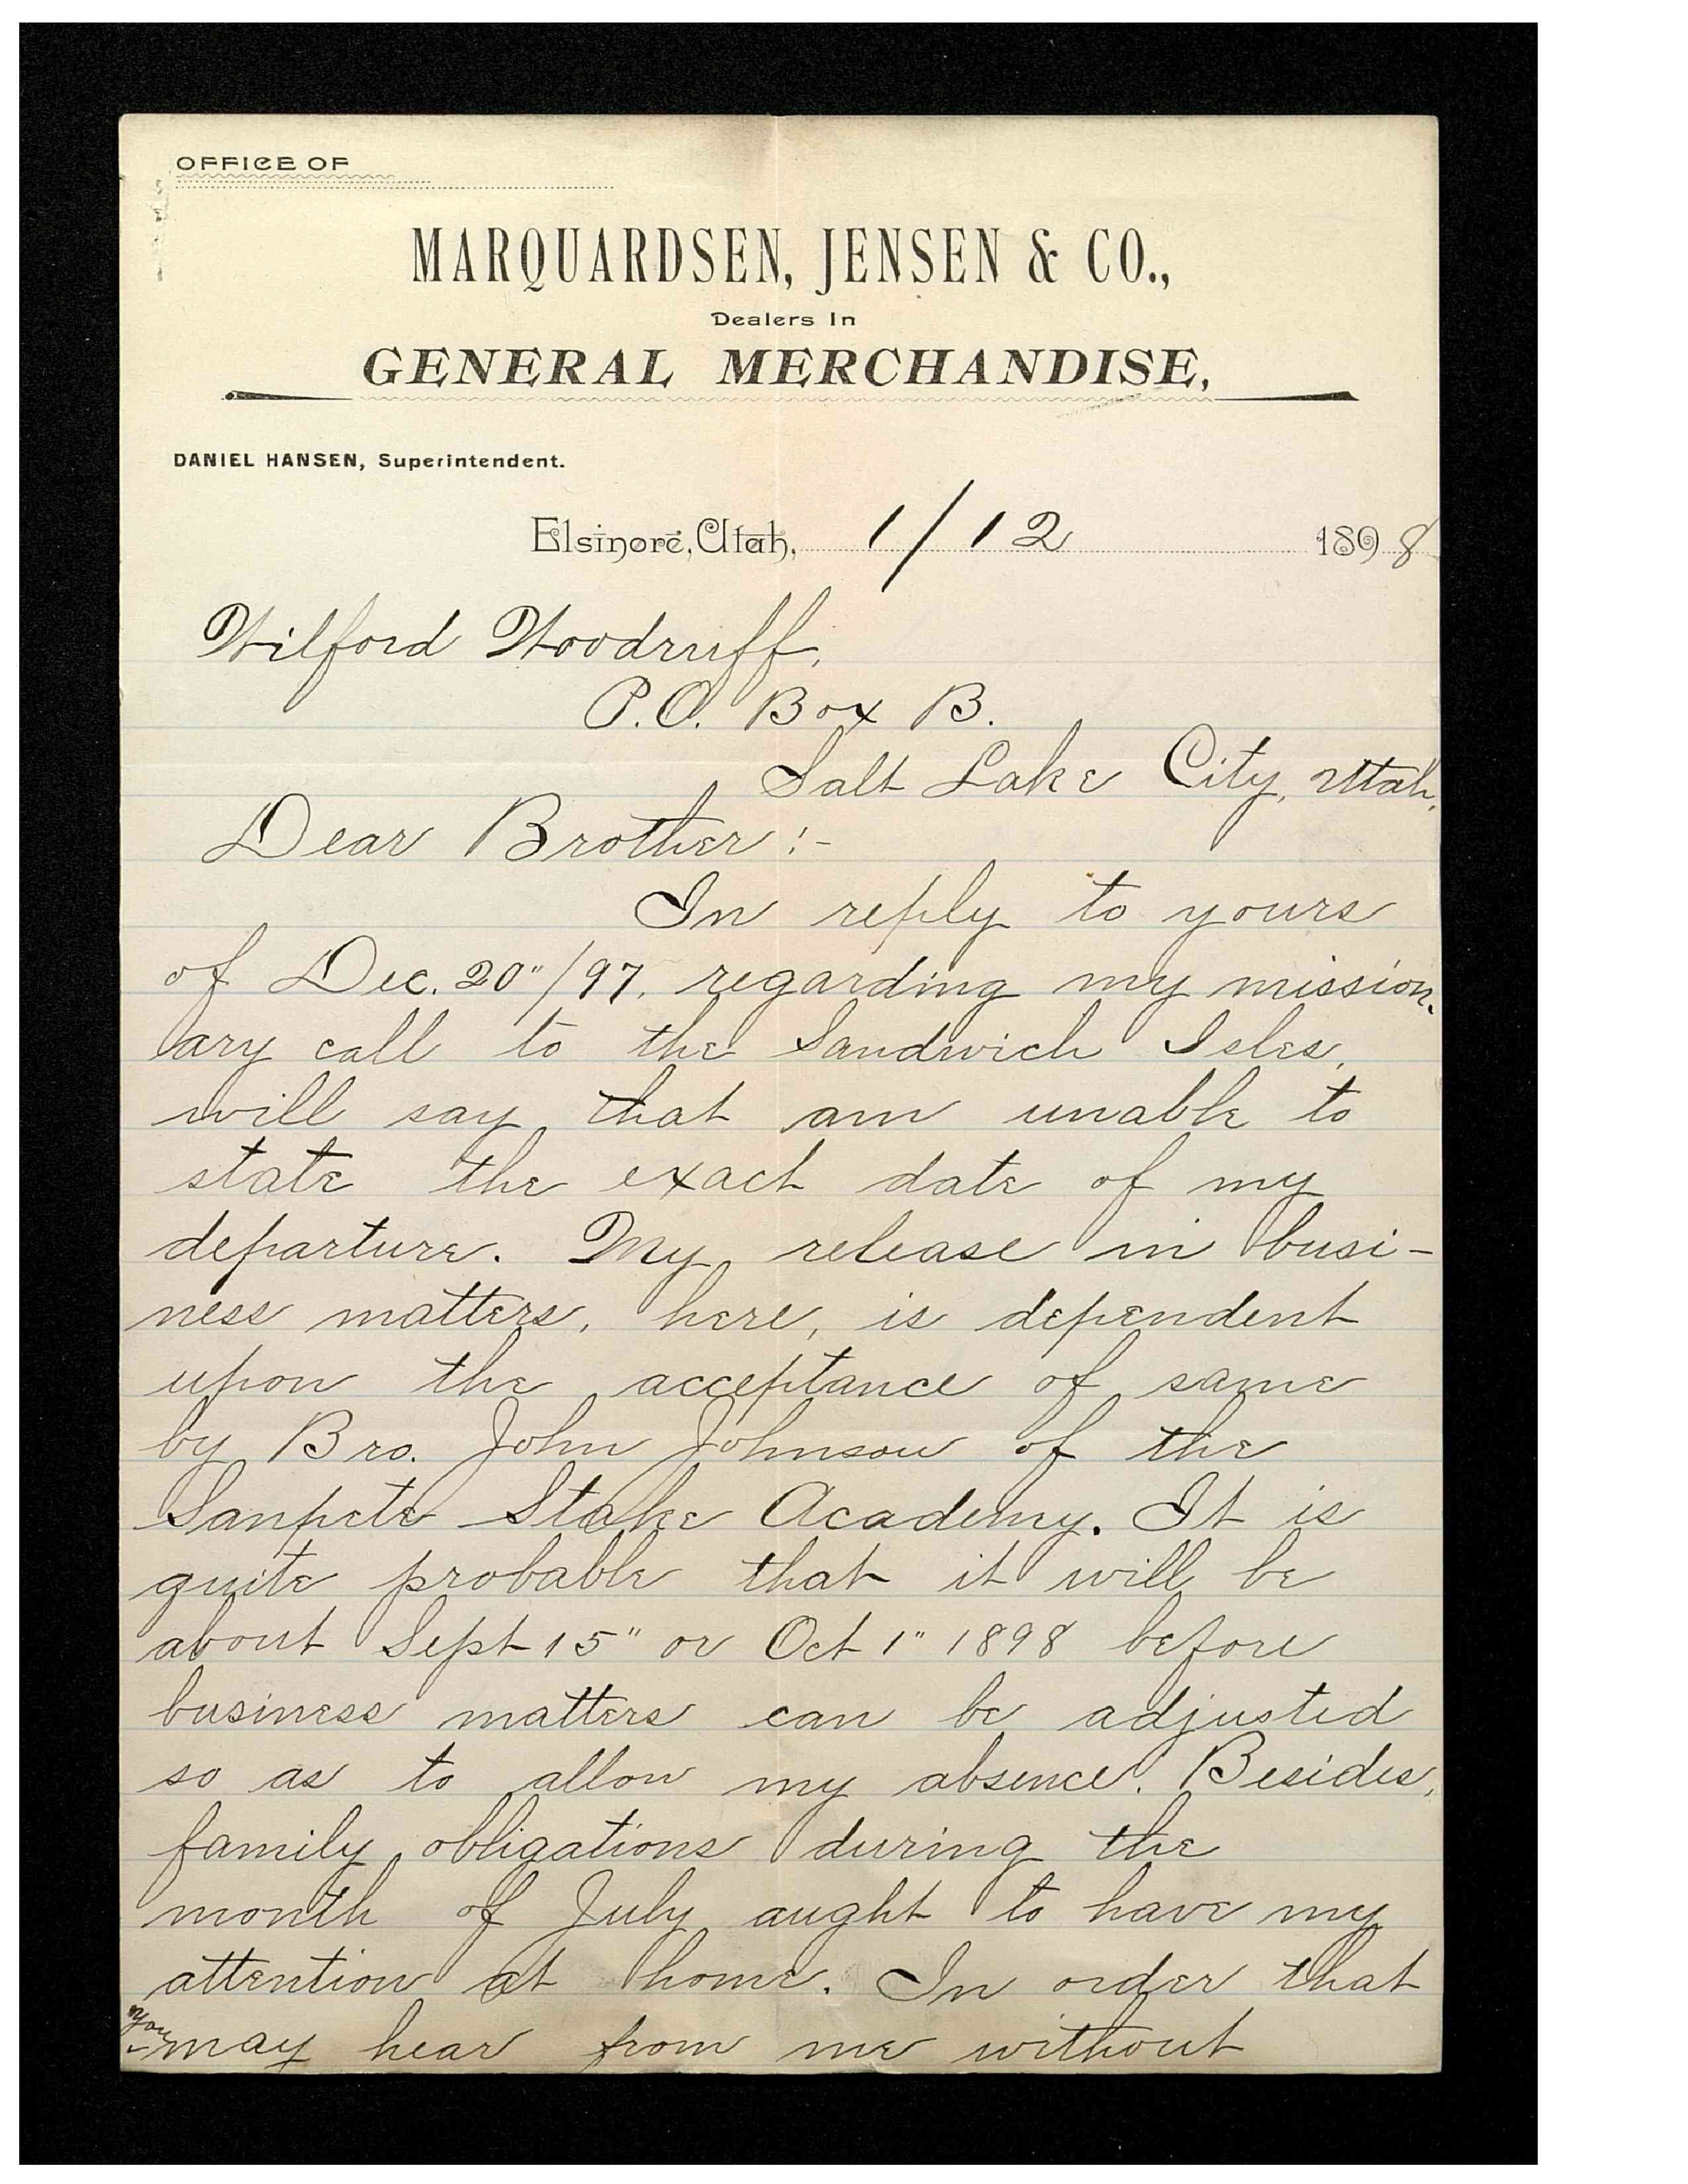 OFFICE OF
MARQUARDSEN, JENSEN & CO.,
Dealers In
GENERAL MERCHANDISE,
DANIEL HANSEN, Superintendent.
Elsinore, Utah, 1/12 1898
Wilford Woodruff,
P.O. Box B.
Salt Lake City, Utah,
Dear Brother:-
In reply to yours
of Dec. 20"/97. regarding my mission-
ary call to the Sandwich Isles,
will say that am unable to
state the exact date of my
departure. My release in busi-
ness matters, here, is dependent
upon the acceptance of same
by Bro. John Johnson of the
Sanpete Stake Academy. It is
quite probable that it will be
about Sept 15" or Oct 1" 1898 before
business matters can be adjusted
so as to allow my absence. Besides,
family obligations during the
month of July aught to have my
attention at home. In order that
you may hear from me without